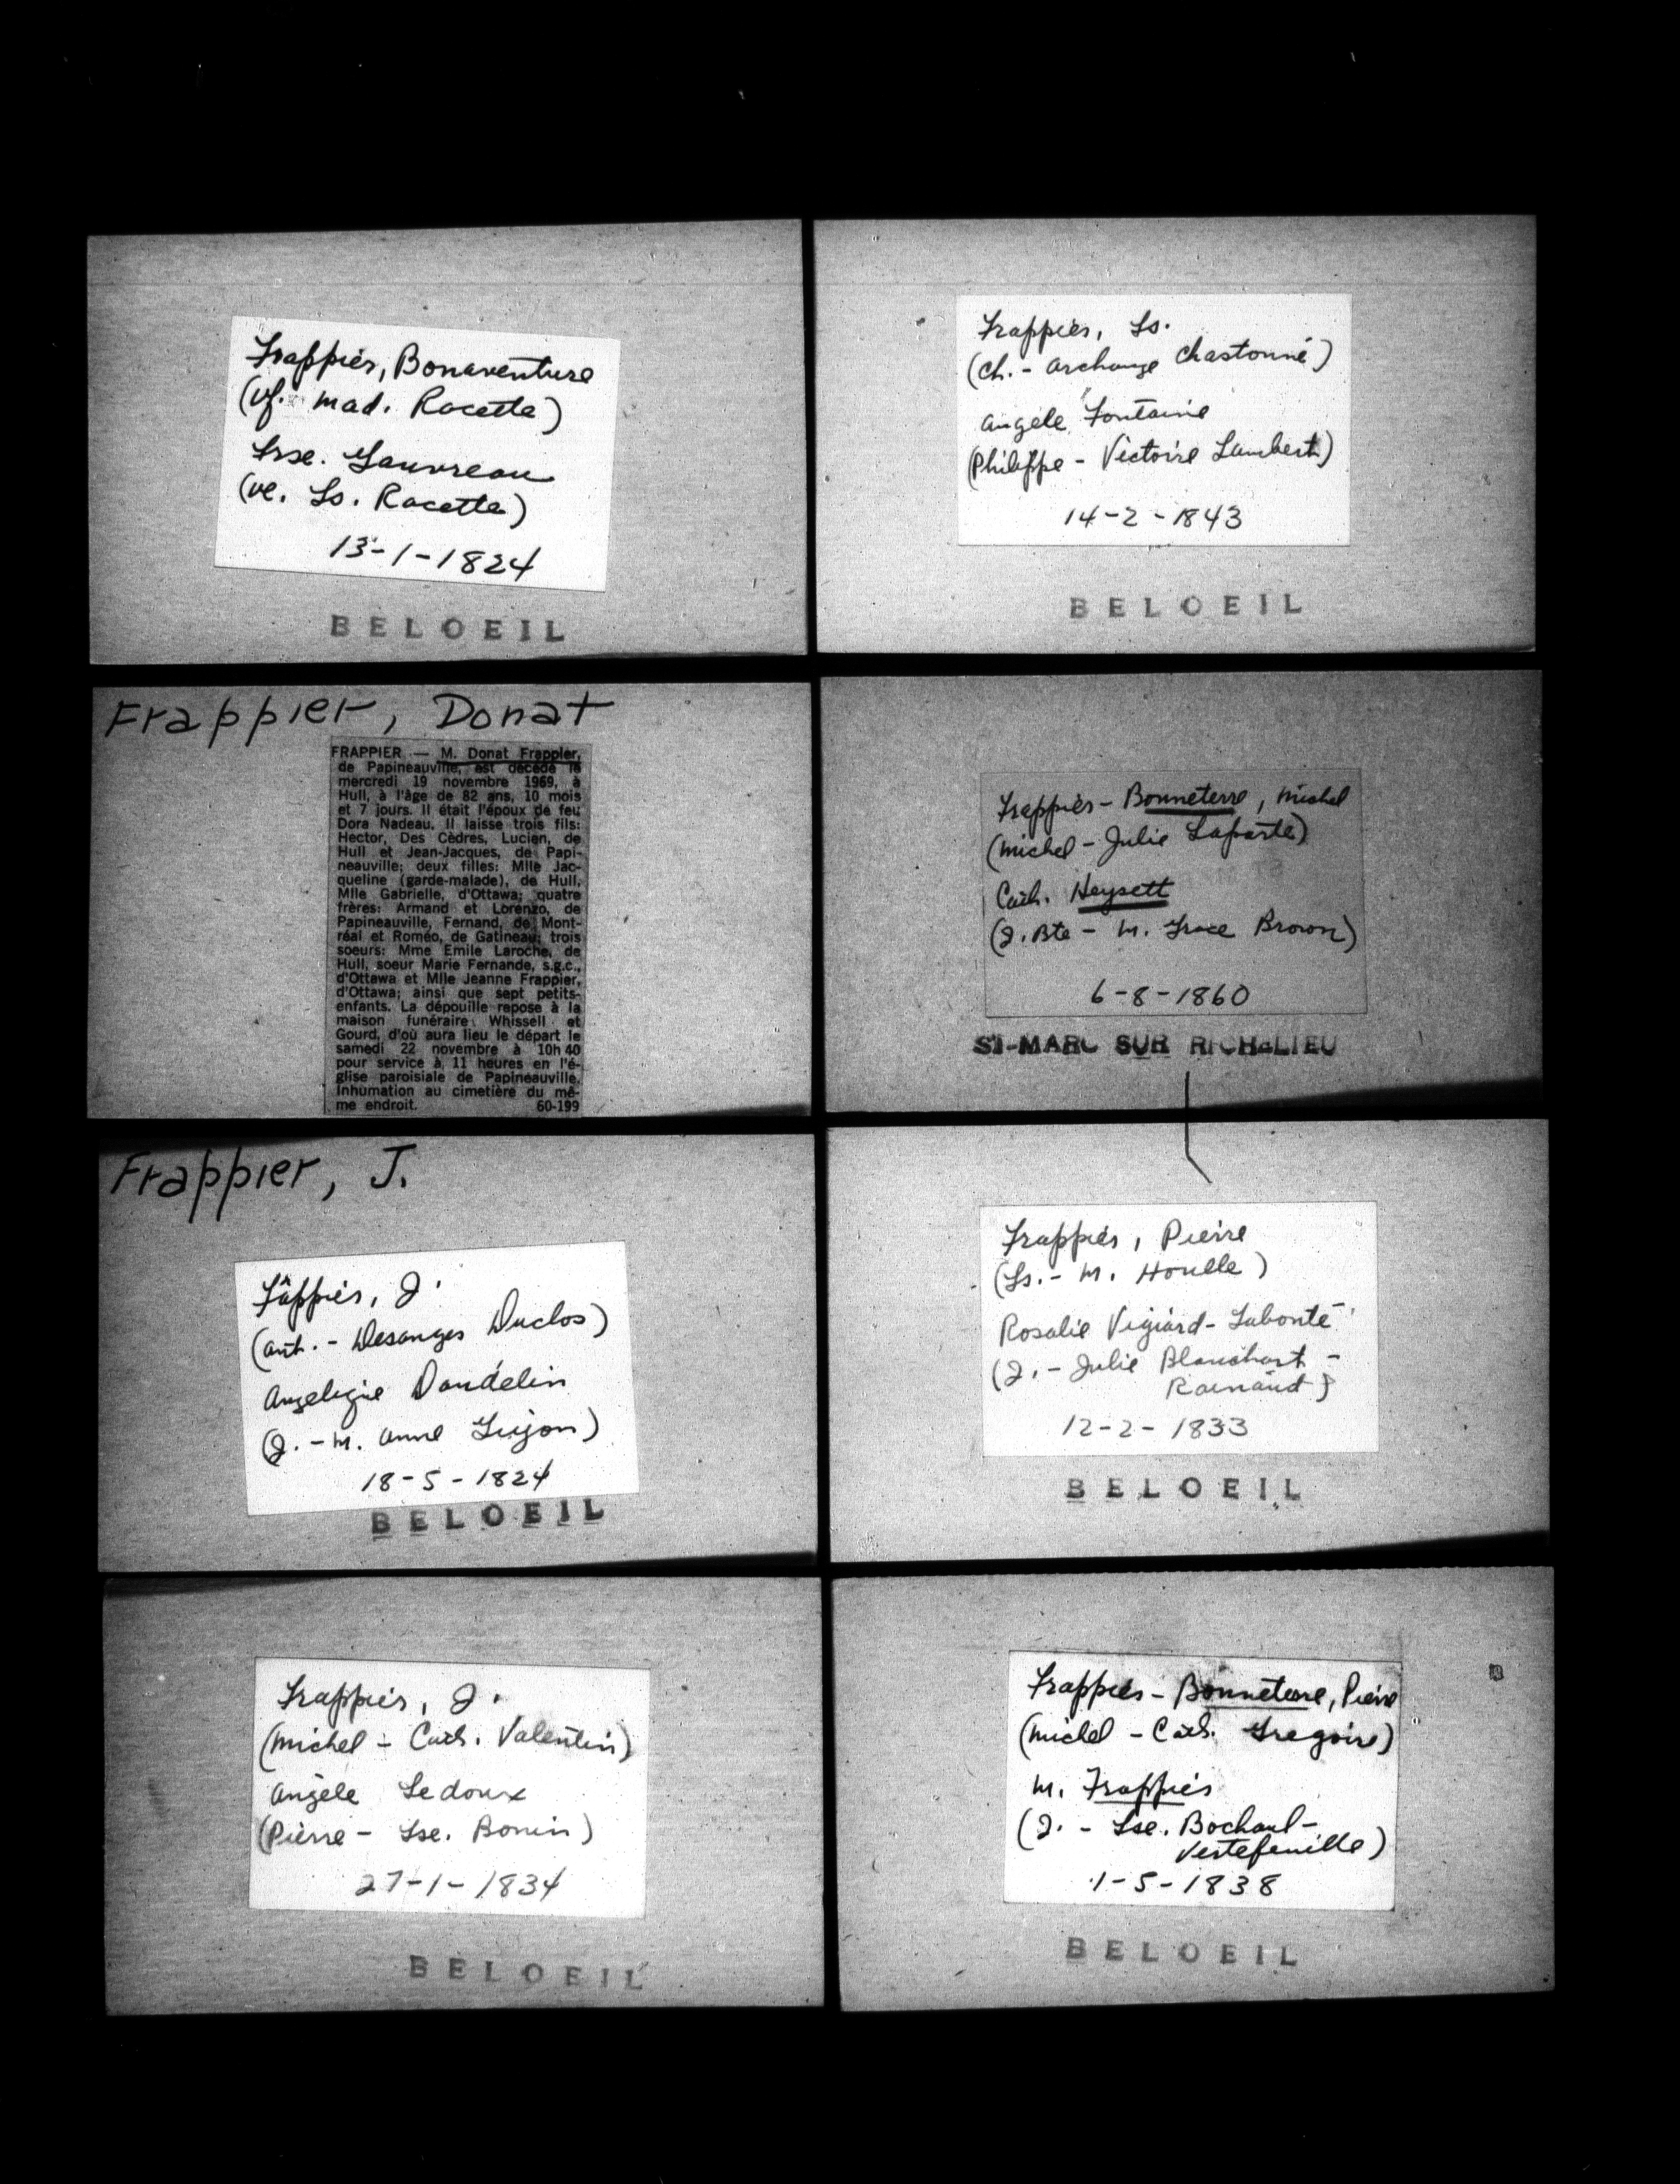 Frappier, Bonaventure
(vf. Mad. Racette)
Frse. Gauvreau
(ve. Ls. Racette)
13-1-1824
BELOEIL
Frappier, Ls.
(Ch. - Archange Chastonné)
Angèle Fontaine
(Philippe - Victoire Lambert)
14-2-1843
BELOEIL
Frappier, Donat
FRAPPIER — M. Donat Frappier,
de Papineauville, est décédé le
mercredi 19 novembre 1969, à
Hull, à l'âge de 82 ans, 10 mois
et 7 jours. Il était l'époux de feu
Dora Nadeau. Il laisse trois fils:
Hector, Des Cèdres, Lucien, de
Hull et Jean-Jacques, de Papi-
neauville; deux filles: Mlle Jac-
queline (garde-malade), de Hull,
Mlle Gabrielle, d'Ottawa; quatre
frères: Armand et Lorenzo, de
Papineauville, Fernand, de Mont-
réal et Roméo, de Gatineau; trois
soeurs: Mme Emile Laroche, de
Hull, soeur Marie Fernande, s.g.c.,
d'Ottawa et Mlle Jeanne Frappier,
d'Ottawa; ainsi que sept petits-
enfants. La dépouille repose à la
maison funéraire Whissell et
Gourd, d'où aura lieu le départ le
samedi 22 novembre à 10h 40
pour service à 11 heures en l'é-
glise paroisiale de Papineauville.
Inhumation au cimetière du mê-
me endroit. 60-199
Frappier-Bonneterre, Michel
(Michel - Julie Laporte)
Cath. Heysett
(J. Bte - M. Grace Brown)
6-8-1860
ST-MARC SUR RICHELIEU
Frappier, J.
Fâppier, J.
(Ant. - Desanges Duclos)
Angeliqie Dandelin
(J. - M. Anne Guyon)
18-5-1824
BELOEIL
Frappier, Pierre
(Ls. - M. Houlle)
Rosalie Vigiard-Labonté
(J. - Julie Blanchart -
Rainaud)
12-2-1833
BELOEIL
Frappier, J.
(Michel - Cath. Valentin)
Angèle Ledoux
(Pierre - Lse. Bonin)
27-1-1834
BELOEIL
Frappier-Bonneterre, Pierre
(Michel - Cath. Gregoire)
M. Frappier
(J. - Lse. Bochaul-
Vertefeuille)
1-5-1838
BELOEIL